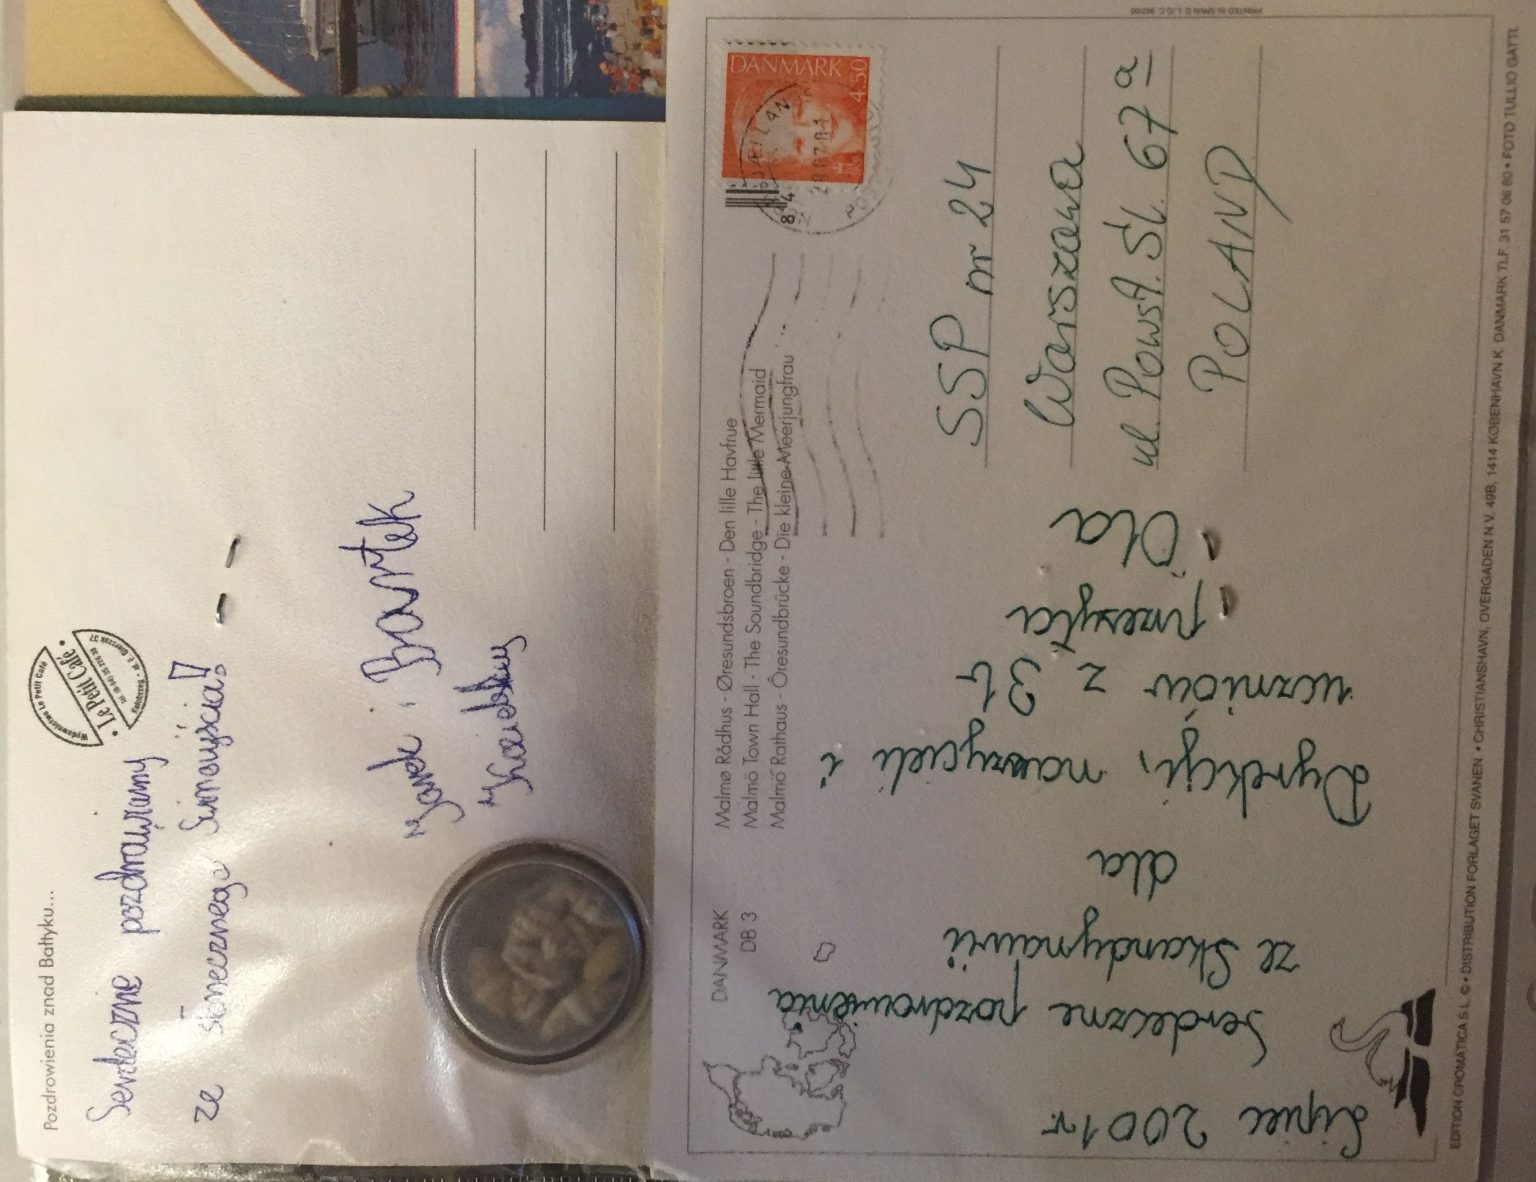 Pozdrowienia znad Bałtyku...
Serdecznie pozdrawiamy
ze słonecznego Świnoujścia!
Janek i Bartek
Wydawnictwo Le Petit Café
Le Petit Café
DANMARK
DB 3
Malmø Rådhus - Øresundsbroen - Den lille Havfrue
Malmö Town Hall - The Soundbridge - The little Mermaid
Malmö Rathaus - Öresundbrücke - Die kleine Meerjungfrau
DANMARK
4.50
Lipiec 2001 r.
Serdeczne pozdrowienia
ze Skandynawii
dla
Dyrekcji, nauczycieli i
uczniów z 3b
przesyła
Ola
SSP nr 24
Warszawa
ul. Powst. Śl. 67a
POLAND
EDITION CROMÁTICA S.L. © • DISTRIBUTION FORLAGET SVANEN • CHRISTIANSHAVN, OVERGADEN N.V. 49B, 1414 KØBENHAVN K. DANMARK TLF. 31 57 06 60 • FOTO TULLIO GATTI
PRINTED IN SPAIN